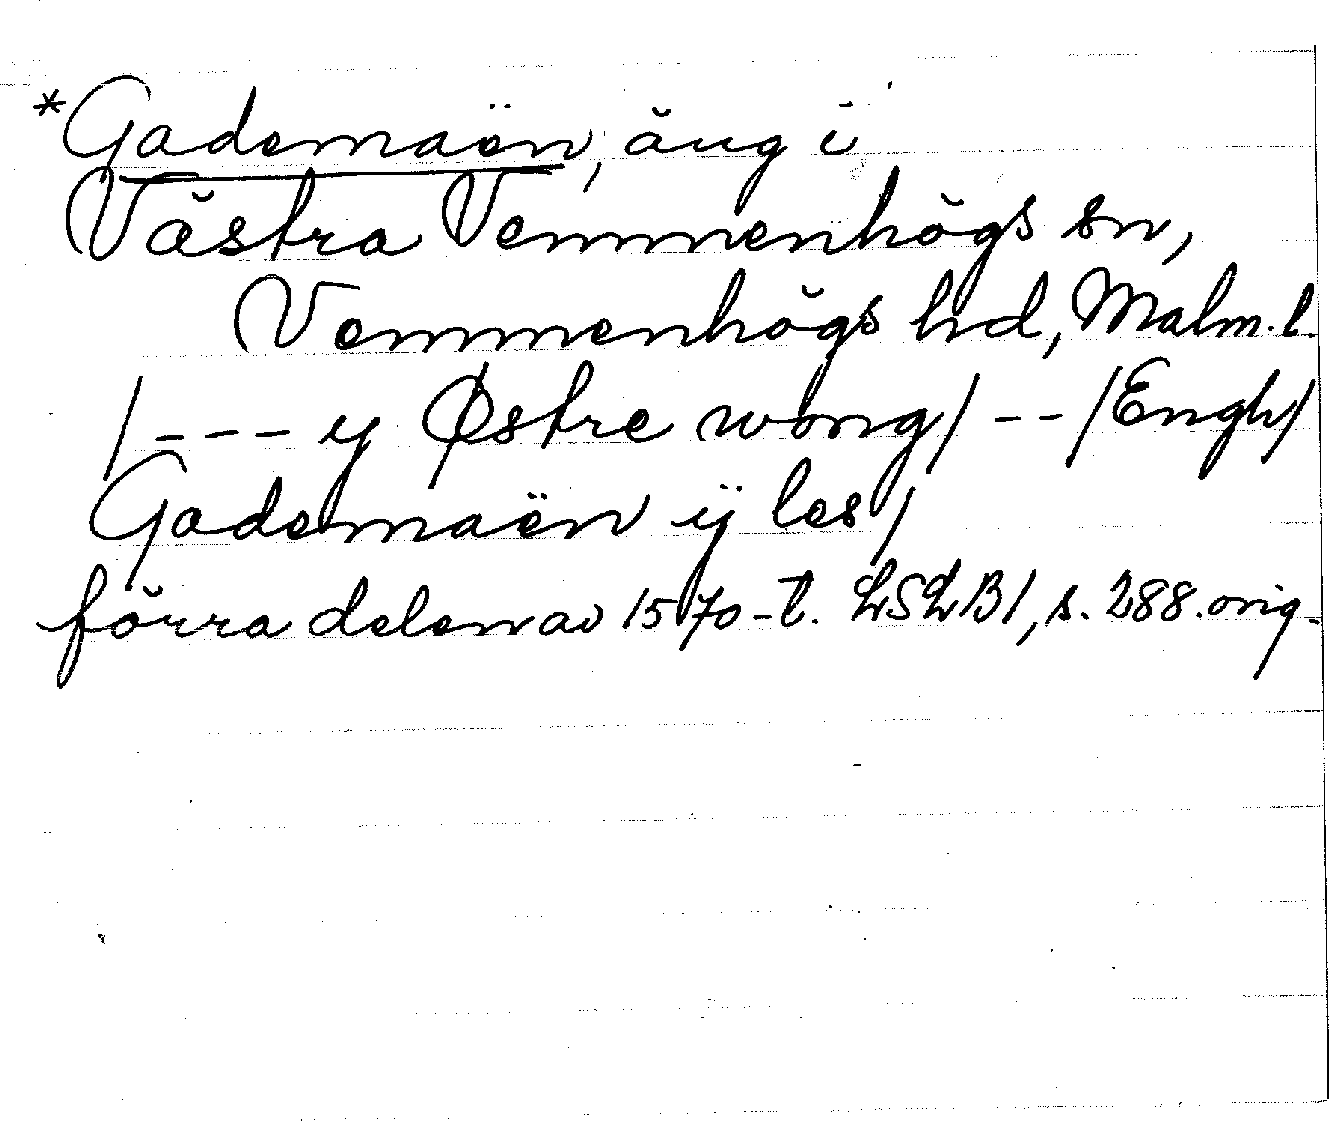 *Gademaën, äng i
Västra Vemmenhögs sn,
Vemmenhögs hd, Malm. l.
/--- y Østre wong/ -- /Engh/
Gademaën ÿ les/
förra delen av 1570-t. LSLB1, s. 288. orig.